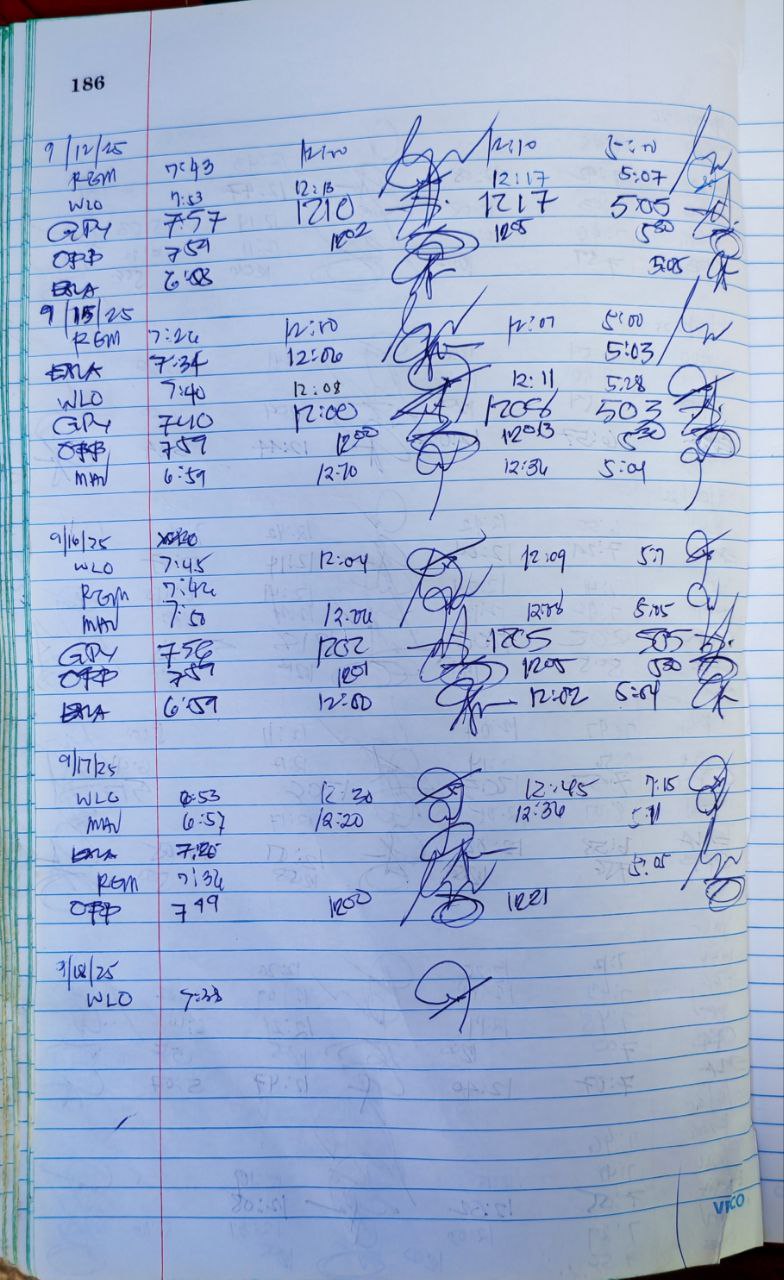 186
9/12/25
REM 7:43 12:10 5:07
WLO 7:53 12:13 12:17
GPY 7:57 1210 1217 5:05
OPP 7 59 1202 1205 5 30
EALA 6:08 5:05
9/15/25
REM 7:26 12:10 12:07 5:00
EALA 7:34 12:06 5:03
WLO 7:40 12:08 12:11 5:28
GPY 740 12:00 1206 503
OPP 7 59 12 00 5 30
MAV 6:59 12:10 12:36 5:04
9/16/25
WLO 7:45 12:04 12:09
REM 7:42
MAV 7:50 12:06 12:08 5:05
GPY 756 1202 1205 505
OPP 7 59 1201 1205 5 30
EALA 6:59 12:00 12:02 5:04
9/17/25
WLO 6:53 12:30 12:45 7:15
MAV 6:57 12:20 12:36 5:11
EALA 7:25
REM 7:36 5:05
OPP 7 49 1200 1221
/18/25
WLO 7:38
VECO